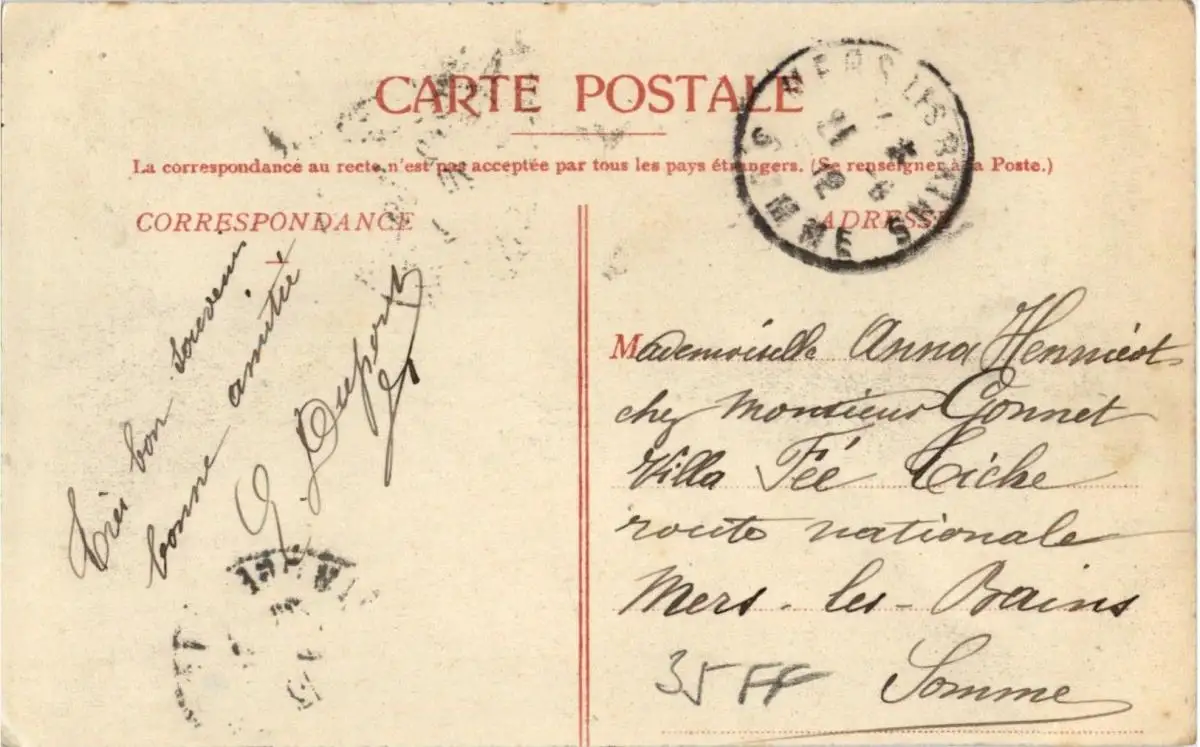 CARTE POSTALE
La correspondance au recto n'est pas acceptée par tous les pays étrangers. (Se renseigner à la Poste.)
CORRESPONDANCE
Très bon souvenir
bonne amitié
G. Dupont
ADRESSE
MERS LES BAINS
SOMME
Mademoiselle Anna Henniéot
chez Monsieur Gonnet
Villa Fée Liche
route nationale
Mers-les-Bains
Somme
35 FF